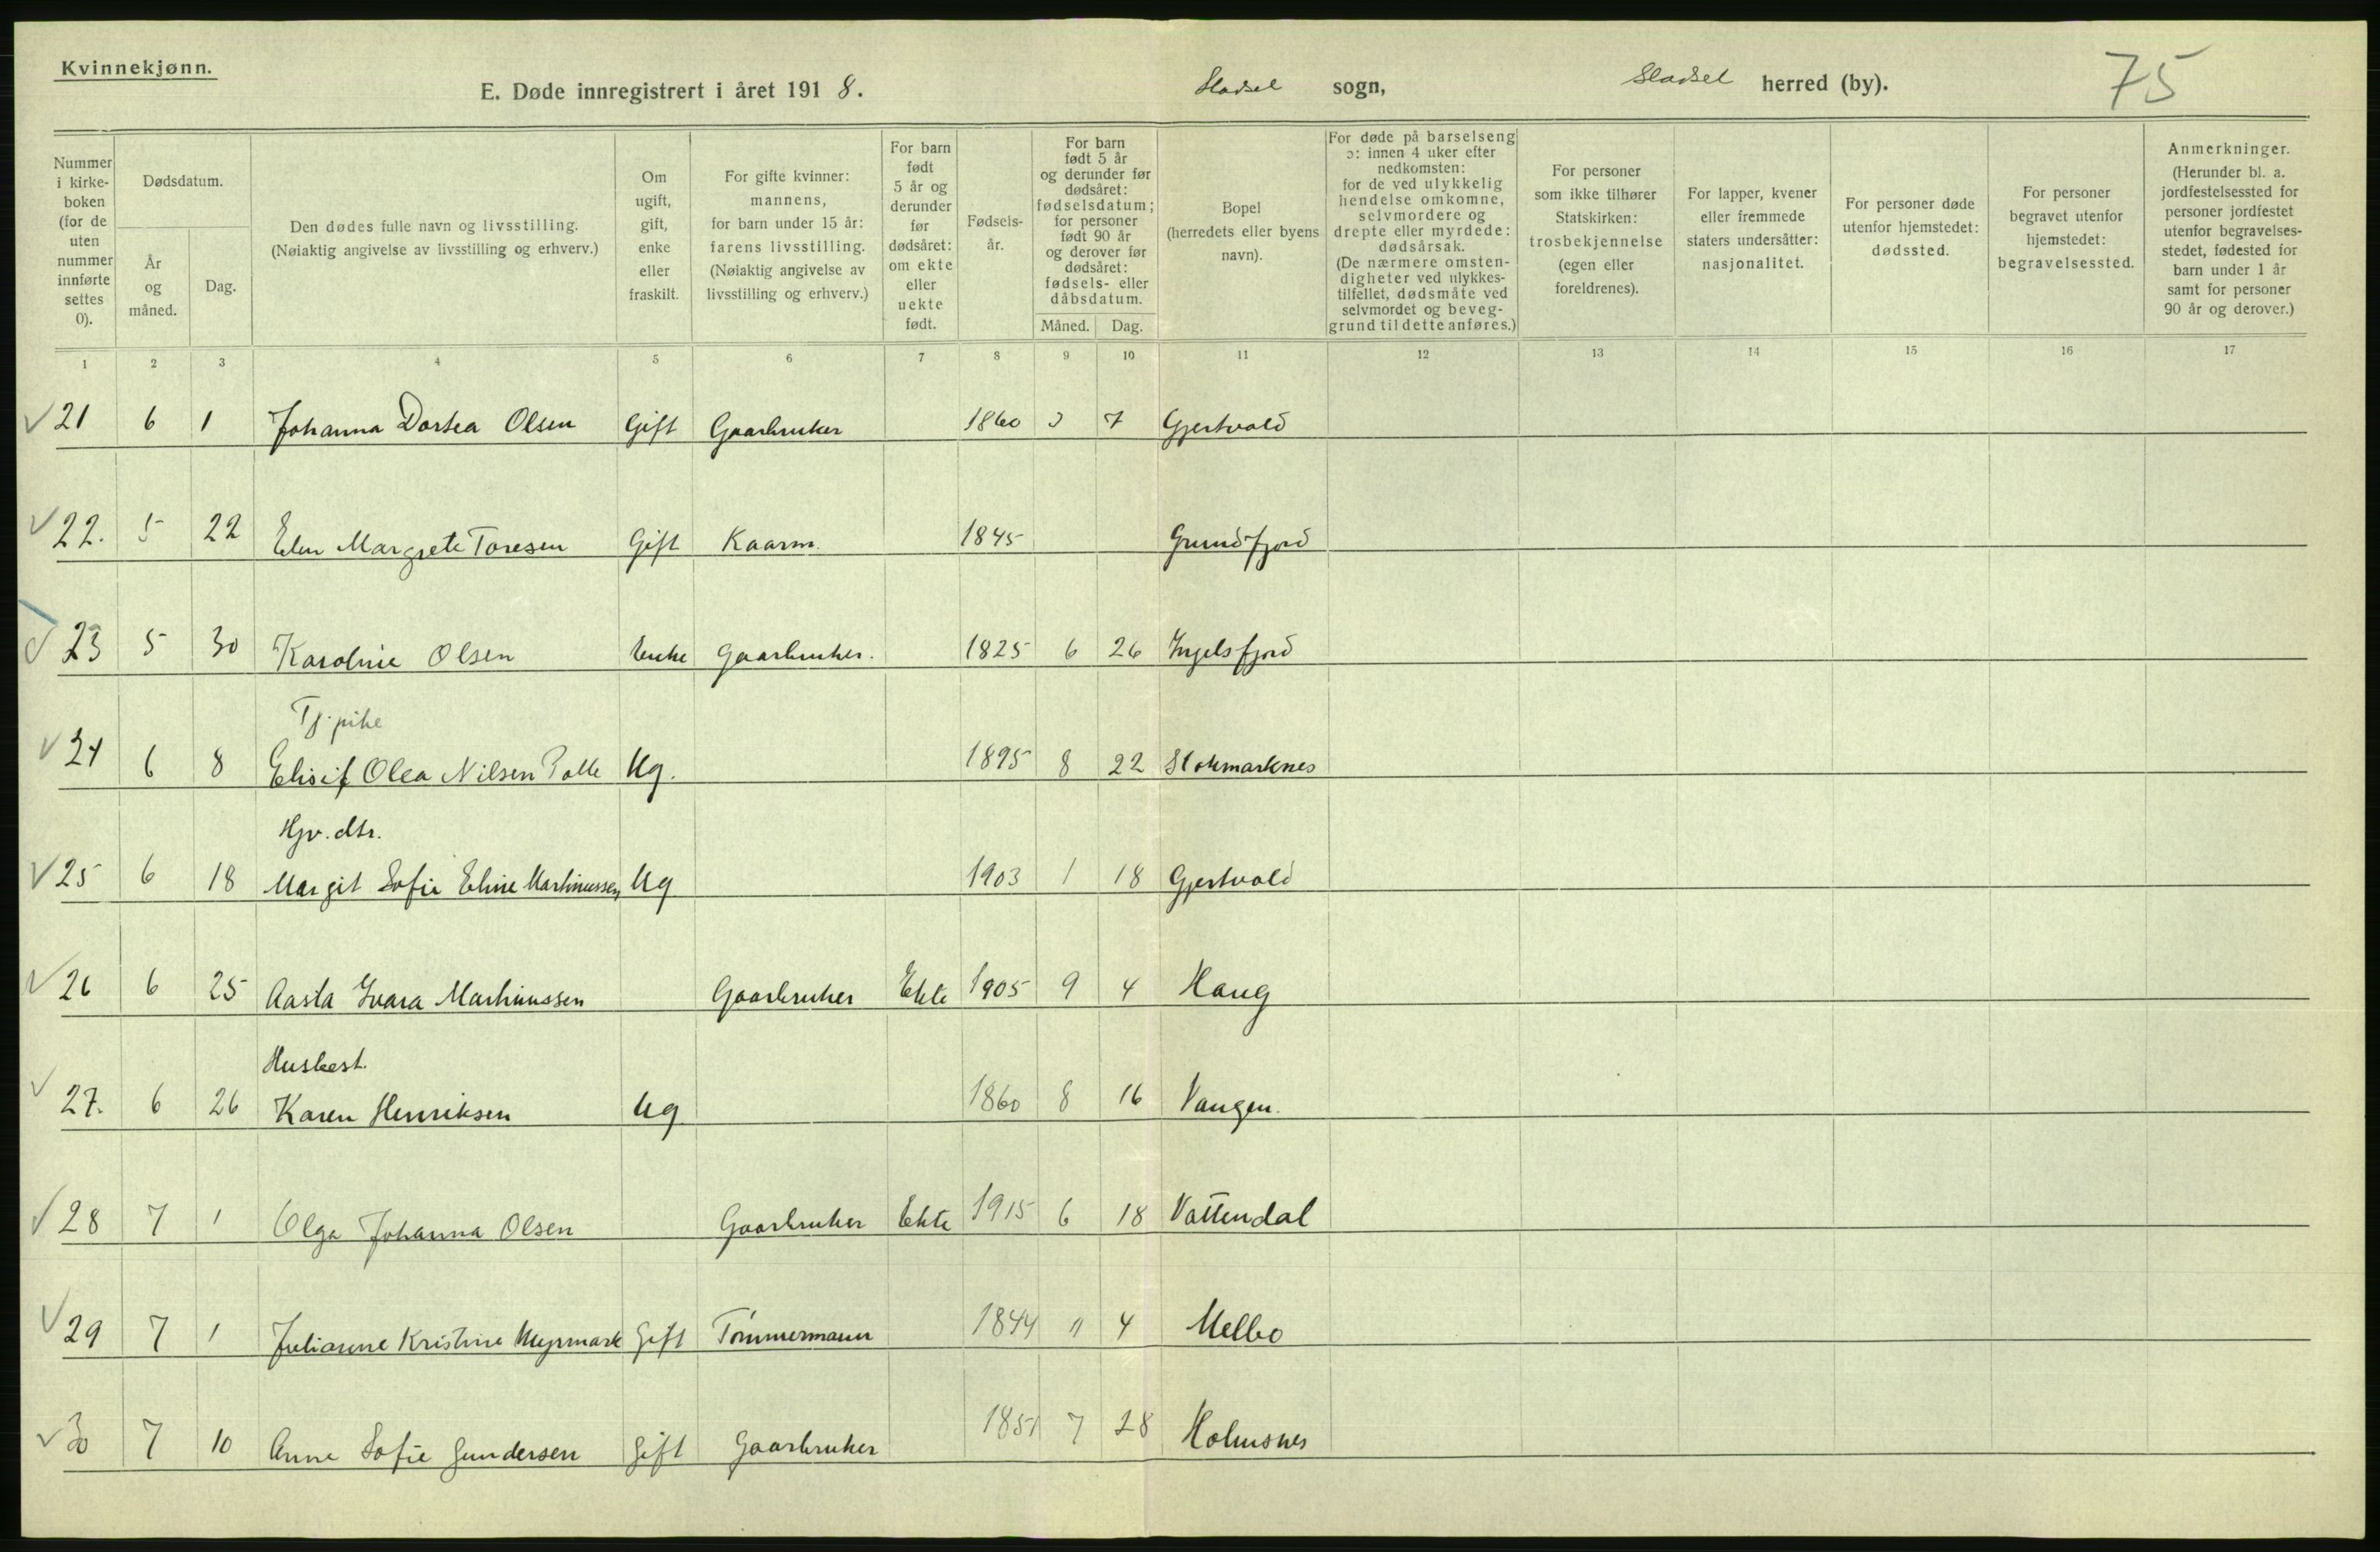 Kvinnekjønn.
E. Døde innregistrert i året 1918. Hadsel sogn, Hadsel herred (by). 75
Nummer i kirke-boken (for de uten nummer innførte settes 0).
Dødsdatum.
År og måned.
Dag.
Den dødes fulle navn og livsstilling.
(Nøiaktig angivelse av livsstilling og erhverv.)
Om ugift, gift, enke eller fraskilt.
For gifte kvinner: mannens, for barn under 15 år: farens livsstilling. (Nøiaktig angivelse av livsstilling og erhverv.)
For barn født 5 år og derunder før dødsåret: om ekte eller uekte født.
Fødsels-år.
For barn født 5 år og derunder før dødsåret: fødselsdatum; for personer født 90 år og derover før dødsåret: fødsels- eller dåbsdatum.
Måned. Dag.
Bopel (herredets eller byens navn).
For døde på barselseng ɔ: innen 4 uker efter nedkomsten: for de ved ulykkelig hendelse omkomne, selvmordere og drepte eller myrdede: dødsårsak. (De nærmere omsten-digheter ved ulykkes-tilfellet, dødsmåte ved selvmordet og beveg-grund til dette anføres.)
For personer som ikke tilhører Statskirken: trosbekjennelse (egen eller foreldrenes).
For lapper, kvener eller fremmede staters undersåtter: nasjonalitet.
For personer døde utenfor hjemstedet: dødssted.
For personer begravet utenfor hjemstedet: begravelsessted.
Anmerkninger. (Herunder bl. a. jordfestelsessted for personer jordfestet utenfor begravelses-stedet, fødested for barn under 1 år samt for personer 90 år og derover.)
1 2 3 4 5 6 7 8 9 10 11 12 13 14 15 16 17
21 6 1 Johanna Dortea Olsen Gift Gaarbruker 1860 3 7 Gjertvold
22. 5 22 Elen Margrete Toresen Gift Kaarm. 1845 Grundfjord
23 5 30 Karoline Olsen Enke Gaarbruker. 1825 6 26 Ingelsfjord
Tj. pike
24 6 8 Elisif Olea Nilsen Polle Ug. 1895 8 22 Stokmarknes
Hjv. dtr.
25 6 18 Margit Sofie Eline Martinussen Ug 1903 1 18 Gjertvold
26 6 25 Aasta Ivara Martinussen Gaarbruker Ekte 1905 9 4 Haug
Husbest.
27. 6 26 Karen Henriksen Ug 1860 8 16 Vangen.
28 7 1 Olga Johanna Olsen Gaarbruker Ekte 1915 6 18 Vottendal
29 7 1 Julianne Kristine Myrmark Gift Tømmermann 1844 11 4 Melbo
30 7 10 Anne Sofie Gundersen Gift Gaarbruker 1851 7 28 Holmsnes